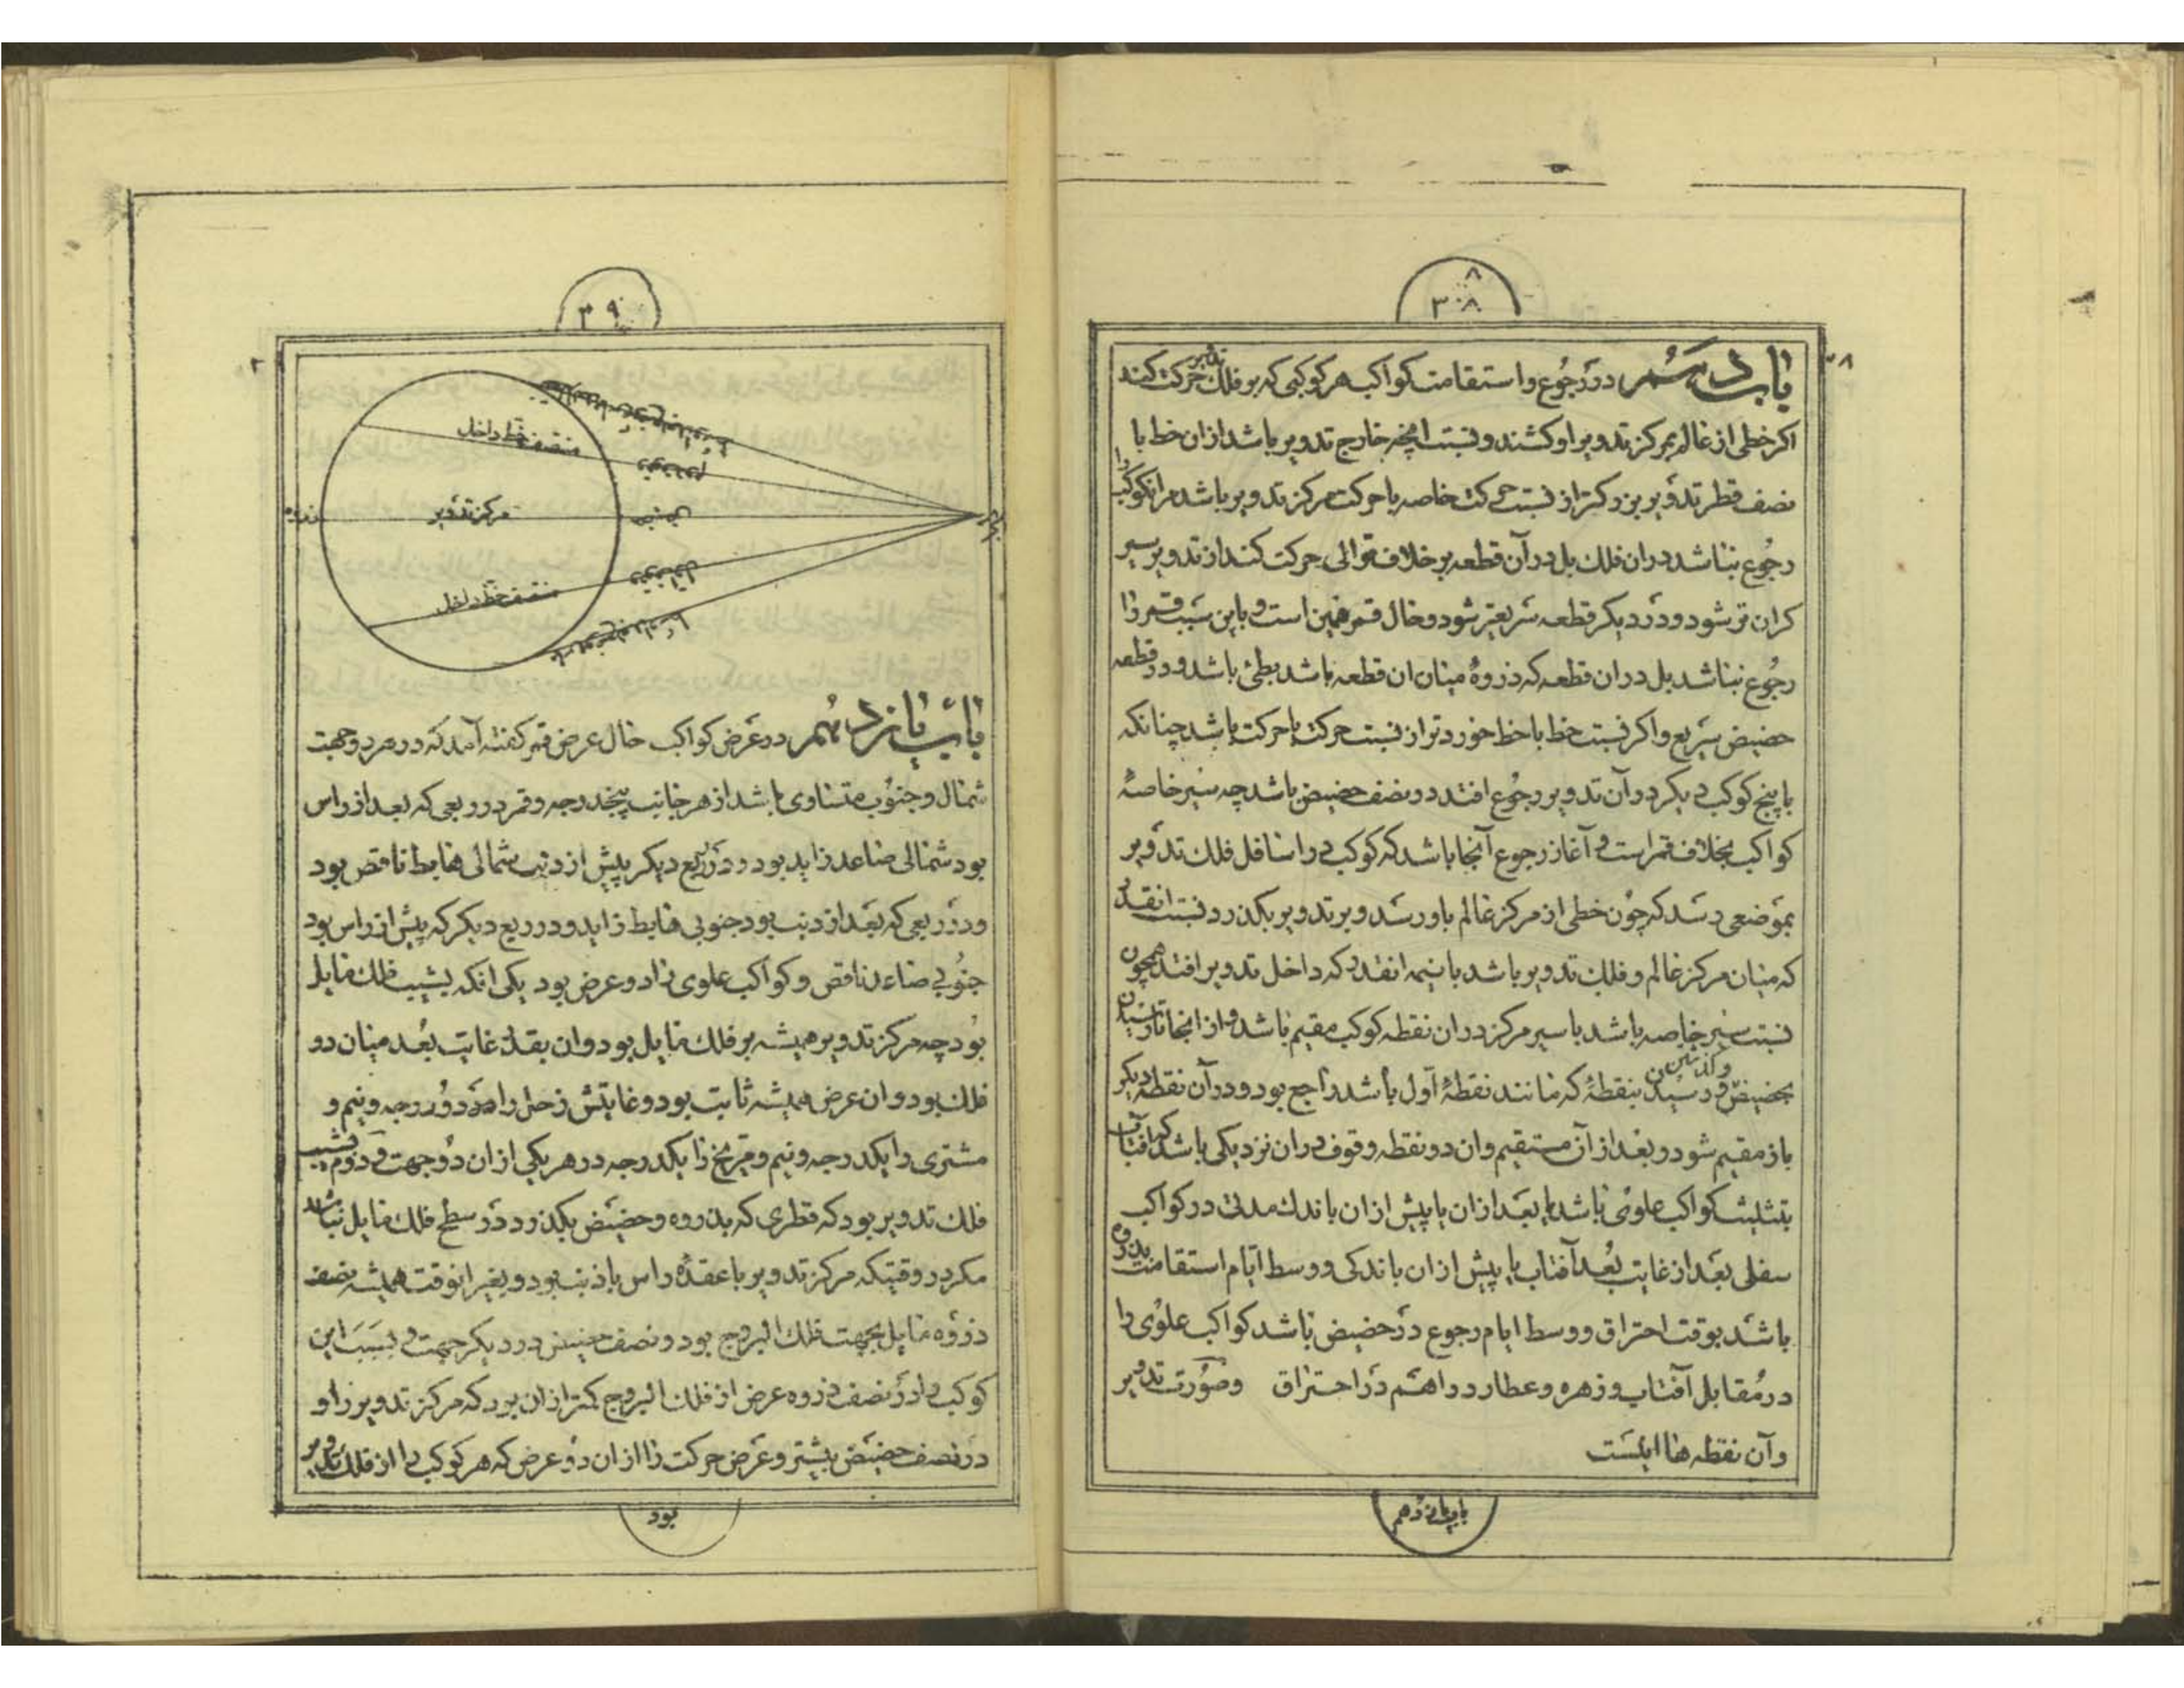 ۳۰۸
باب دهم در رجوع و استقامت کواکب هر کوکبی که بر فلک تدویر حرکت کند
اکر خطی از عالم بمرکز تدویر او کشند و نسبت انچه خارج تدویر باشد از ان خط با
نصف قطر تدویر بزرکتر از نسبت حرکت خاصه با حرکت مرکز تدویر باشد مر انکوکب را
رجوع نباشد در ان فلک بل در آن قطعه بر خلاف توالی حرکت کند از تدویر سیر
کران تر شود و در دیکر قطعه سریعتر شود و حال قمر همین است و باین سبب قمر را
رجوع نباشد بل در ان قطعه که ذروهٔ میان ان قطعه باشد بطئی باشد و در قطعه
حضیض سریع و اکر نسبت خط با خط خوردتر از نسبت حرکت با حرکت باشد چنانکه
با پنج کوکب دیکر در آن تدویر رجوع افتد در نصف حضیض باشد چه سیر خاصهٔ
کواکب بخلاف قمر است و آغاز رجوع آنجا باشد که کوکب در اسافل فلک تدویر
بموضعی رسد که چون خطی از مرکز عالم باو رسد و بر تدویر بکذرد نسبت انقدر
که میان مرکز عالم و فلک تدویر باشد با نیمه انقدر که داخل تدویر افتد همچون
نسبت سیر خاصه باشد با سیر مرکز در ان نقطه کوکب مقیم باشد و از انجا تا رسیدن
بحضیض و کذشتن و رسیدن بنقطهٔ که مانند نقطهٔ اول باشد راجع بود و در آن نقطه دیکر
باز مقیم شود و بعد از آن مستقیم و ان دو نقطه وقوف در ان نزدیکی باشد که افتاب
بتثلیث کواکب علوی باشد یا بعد از ان یا پیش از ان باندک مدتی در کواکب
سفلی بعد از غایت بعد آفتاب یا پیش از ان باندکی و وسط ایام استقامت بذروه
باشد بوقت احتراق و وسط ایام رجوع در حضیض باشد کواکب علوی را
در مقابل آفتاب و زهره و عطارد را هم در احتراق وصورت تدویر
وآن نقطه ها اینست
باب یازدهم
۳۹
منتصف خط داخل
وقوف دوم
مرکز تدویر
حضیض
ذروه
وقوف اول
منتصف خط داخل
باب یازدهم در عرض کواکب حال عرض قمر کفته آمد که در هر دو جهت
شمال و جنوب متساوی باشد از هر جانب پنجدرجه و قمر در ربعی که بعد از راس
بود شمالی صاعد زاید بود و در ربع دیکر پیش از ذنب شمالی هابط ناقص بود
ودر ربعی که بعد از ذنب بود جنوبی هابط زاید و در ربع دیکر که پیش از راس بود
جنوبی صاعد ناقص و کواکب علوی را دو عرض بود یکی انکه بسبب فلک مایل
بود چه مرکز تدویر همیشه بر فلک مایل بود و ان بقدر غایت بعد میان دو
فلک بود و ان عرض همیشه ثابت بود و غایتش زحل را دو درجه و نیم و
مشتری را یکدرجه و نیم و مریخ را یکدرجه در هر یکی از ان دو جهت و دوم بسبب
فلک تدویر بود که قطری که بذروه و حضیض بکذرد در سطح فلک مایل نباشد
مکر در وقتیکه مرکز تدویر با عقدهٔ راس یا ذنب بود و بغیر انوقت همیشه نصف
ذروه مایل بجهت فلک البروج بود و نصف حضیض در دیکر جهت و بسبب این
کوکب را در نصف ذروه عرض از فلک البروج کمتر از ان بود که مرکز تدویر را و
در نصف حضیض بیشتر و عرض حرکت را از ان دو عرض که هر کوکب را از فلک تدویر
بود